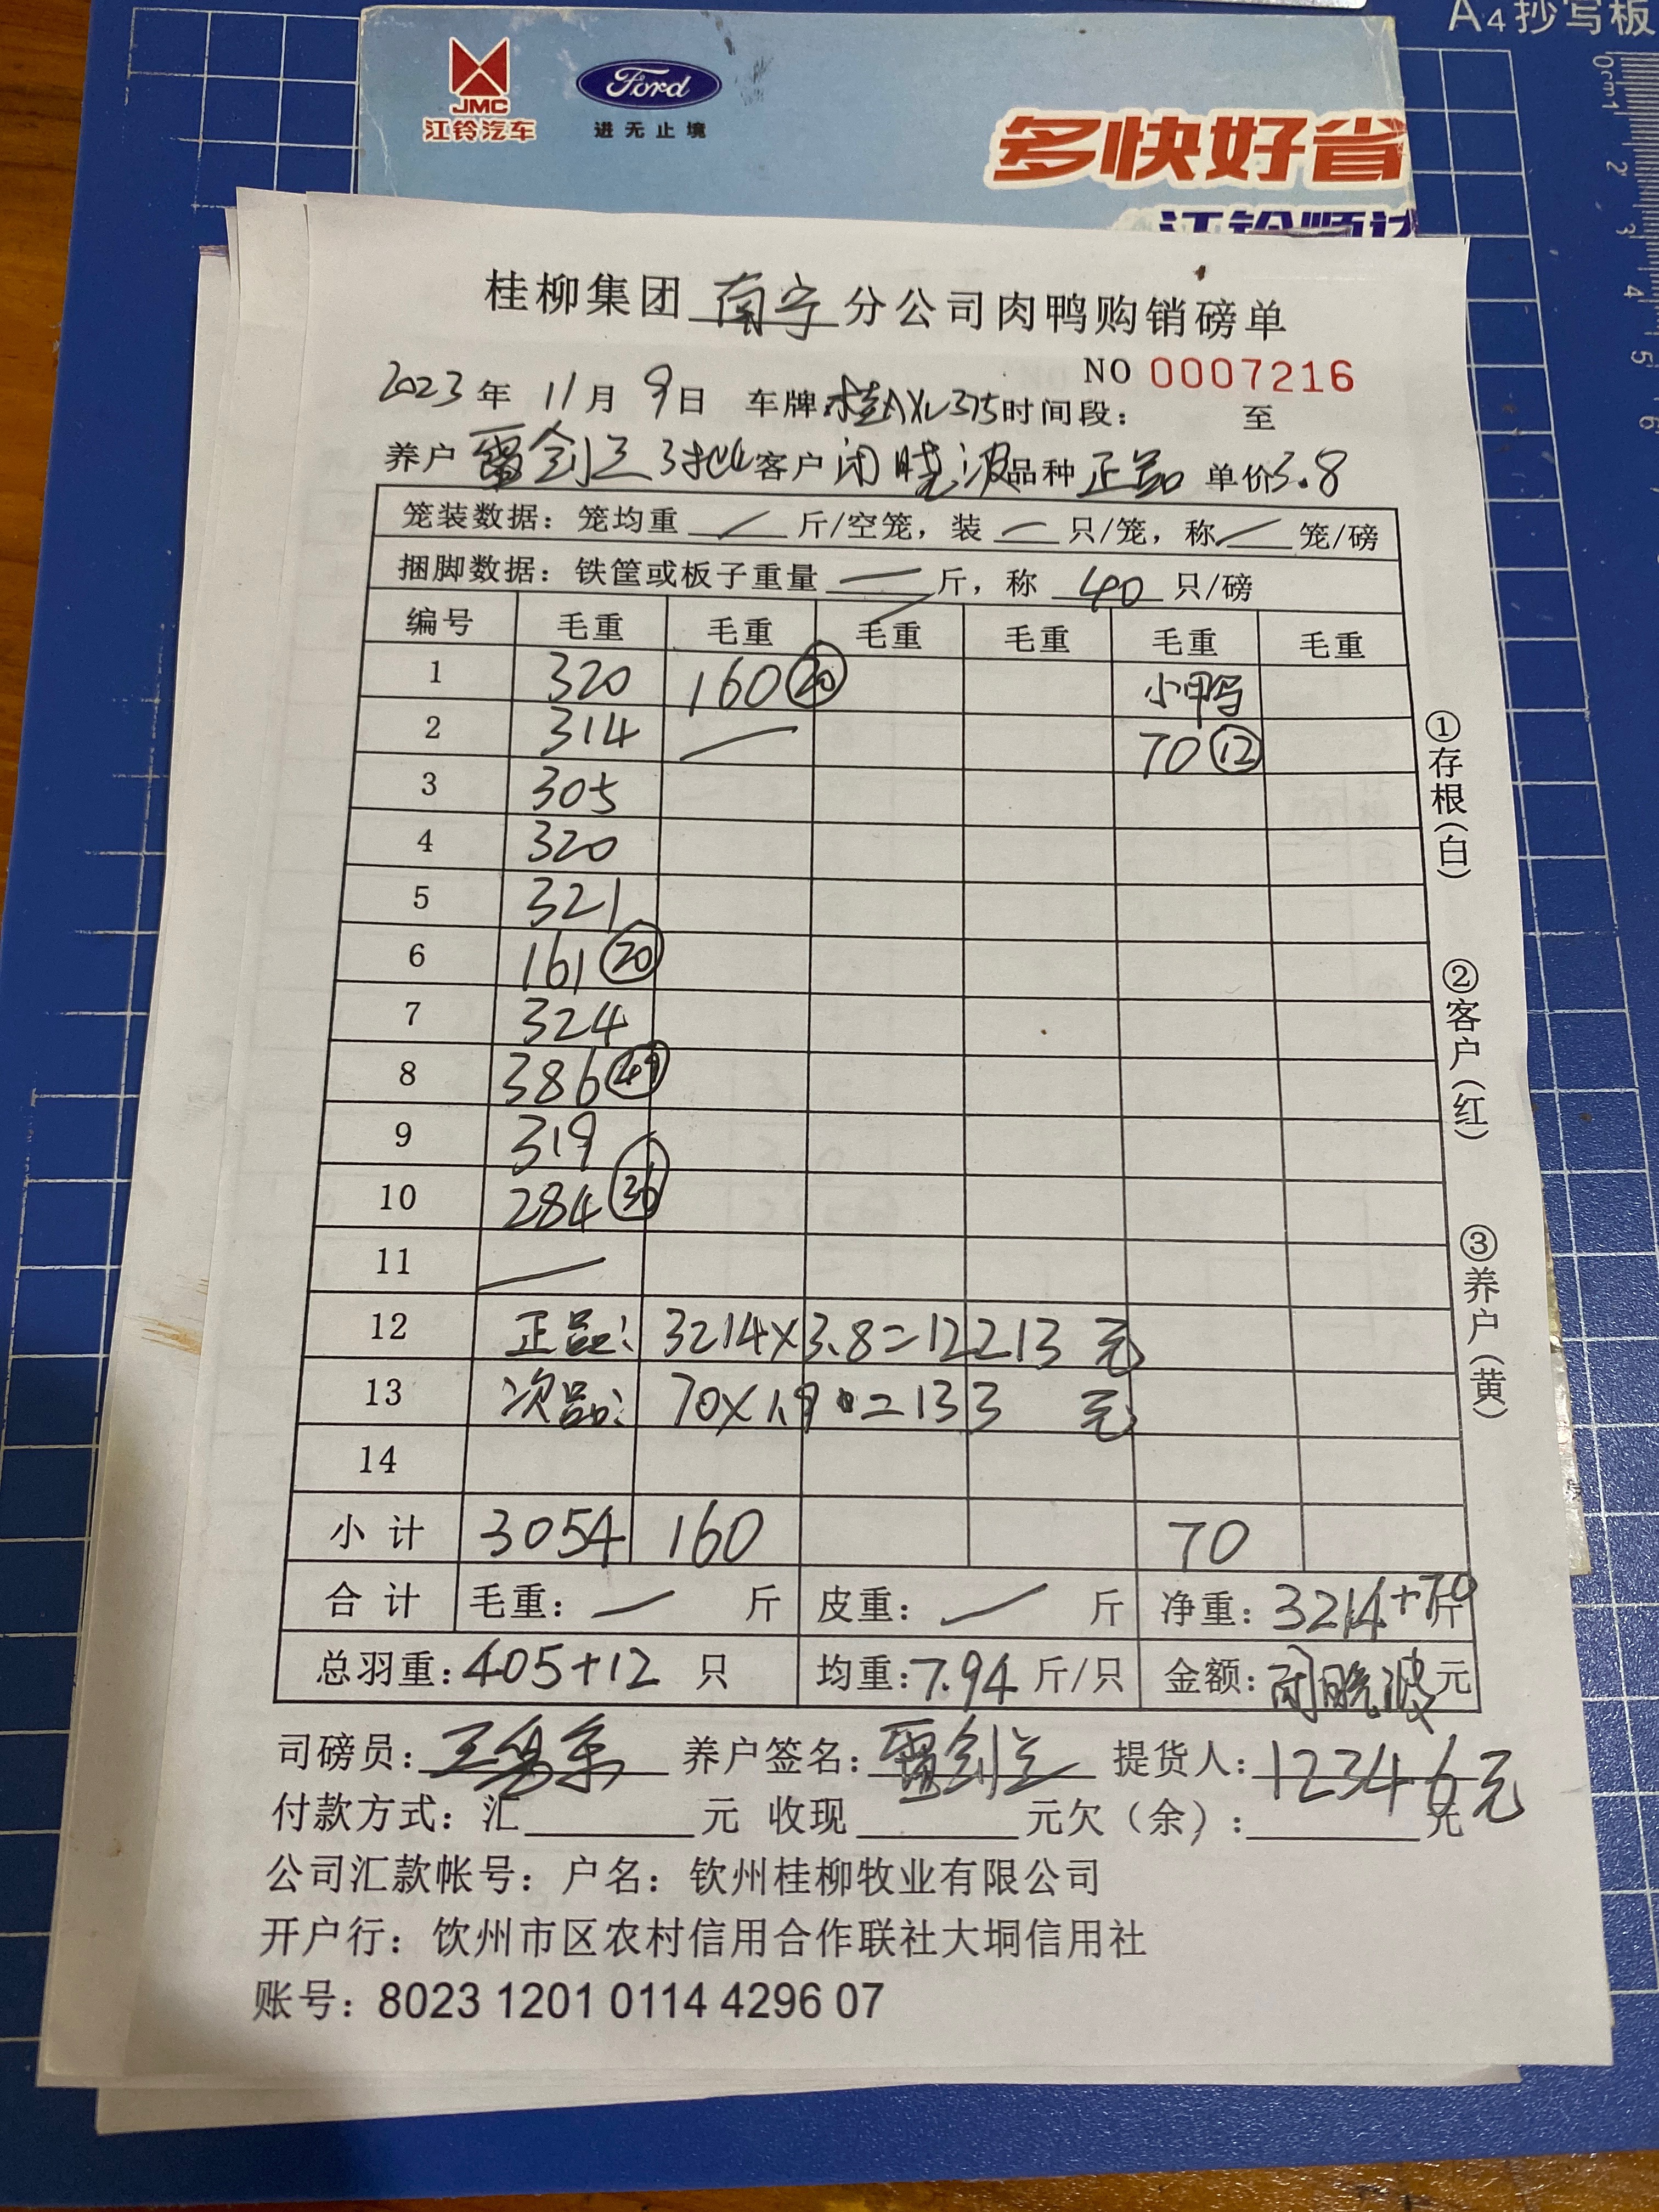 A4抄写板
0cm1 2 3 4 5 6
JMC
江铃汽车
Ford
进无止境
多快好省
江铃顺达
桂柳集团 南宁 分公司肉鸭购销磅单
NO 0007216
2023年 11月 9日 车牌:桂AXL375 时间段: 至
养户 雷剑兰 3批 客户 闭晓波 品种 正品 单价3.8
笼装数据: 笼均重 / 斤/空笼, 装 / 只/笼, 称 / 笼/磅
捆脚数据: 铁筐或板子重量 / 斤, 称 40 只/磅
编号 毛重 毛重 毛重 毛重 毛重 毛重
1 320 160 ⑳ 小鸭
2 314 / 70 ⑫
3 305
4 320
5 321
6 161 ⑳
7 324
8 386 ㊾
9 319
10 284 ㊱
11 /
12 正品: 3214×3.8=12213 元
13 次品: 70×1.9=133 元
14
小计 3054 160 70
合计 毛重: / 斤 皮重: / 斤 净重: 3214+70斤
总羽重: 405+12 只 均重: 7.94 斤/只 金额: 闭晓波 元
司磅员: 养户签名: 雷剑兰 提货人: 12346元
付款方式: 汇 元 收现 元欠(余): 元
公司汇款帐号: 户名: 钦州桂柳牧业有限公司
开户行: 钦州市区农村信用合作联社大垌信用社
账号: 8023 1201 0114 4296 07
①存根(白)
②客户(红)
③养户(黄)